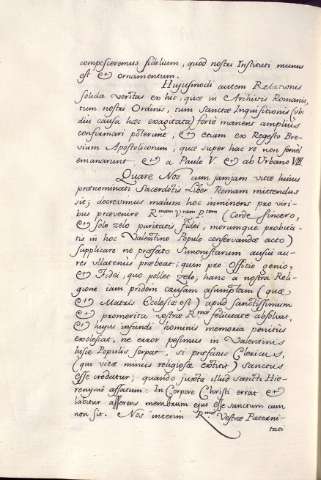 compesceremus fidelium, quod nostri Instituti munus
est & ornamentum.
Hujusmodi autem Relationis
solida veritas ex his, quæ in Archivis Romanis,
tum nostri Ordinis, tum Sanctæ Inquisitionis (ubi
diu causa hæc exagitata) fortè manent amplius
confirmari poterunt, & etiam ex Regesto Bre-
vium Apostolicorum, quæ super hac re non semel
emanarunt, & a Paulo V. & ab Urbano VIII.
Quare Nos cum jamjam vitæ huius
prænominati Sacerdotis Liber Romam mittendus
sit; docturimus malum hoc imminens pro viri-
bus prævenire R.mam P.tem (Corde sincero,
& solo zelo puritatis fidei, morumque probita-
tis in hoc Valentino Populo conservandæ acto)
supplicare ne præfato Simonistarum ausui au-
res ullatenus præbeat; quin pro Officio, genio,
& Fidei, quo pollet zelo, hanc a nostra Reli-
gione iam pridem causam assumptam (quæ
& Matris Ecclesiæ est) apud Sanctissimum
& promerita vestræ R.mæ
& huius infandi hominis memoria penitus
exolescat, ne error pessimus in Valentinis
huiæ Populis serpat, si præfatus Clericus,
(qui vitæ minus religiosæ extitit) sanctus
esse credatur; quando juxta illud Sancti Hie-
ronymi assatum: In Corpore Christi errat &
labitur asserens membrum ejus esse sanctum cum
non sit. Nos interim R.mæ Vestræ Paterni-
tati